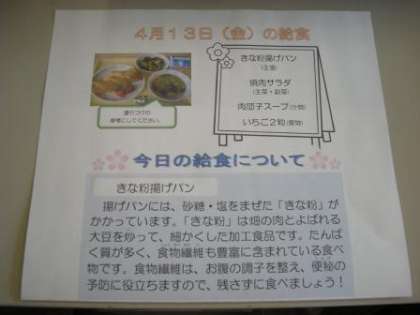 4月13日（金）の給食
きな粉揚げパン
（主食）
焼肉サラダ
（主菜・副菜）
肉団子スープ（汁物）
いちご2旬（果物）
盛りつけの
参考にしてください。
今日の給食について
きな粉揚げパン
揚げパンには、砂糖・塩をまぜた「きな粉」が
かかっています。「きな粉」は畑の肉とよばれる
大豆を炒って、細かくした加工食品です。たんぱ
く質が多く、食物繊維も豊富に含まれている食べ
物です。食物繊維は、お腹の調子を整え、便秘の
予防に役立ちますので、残さずに食べましょう！